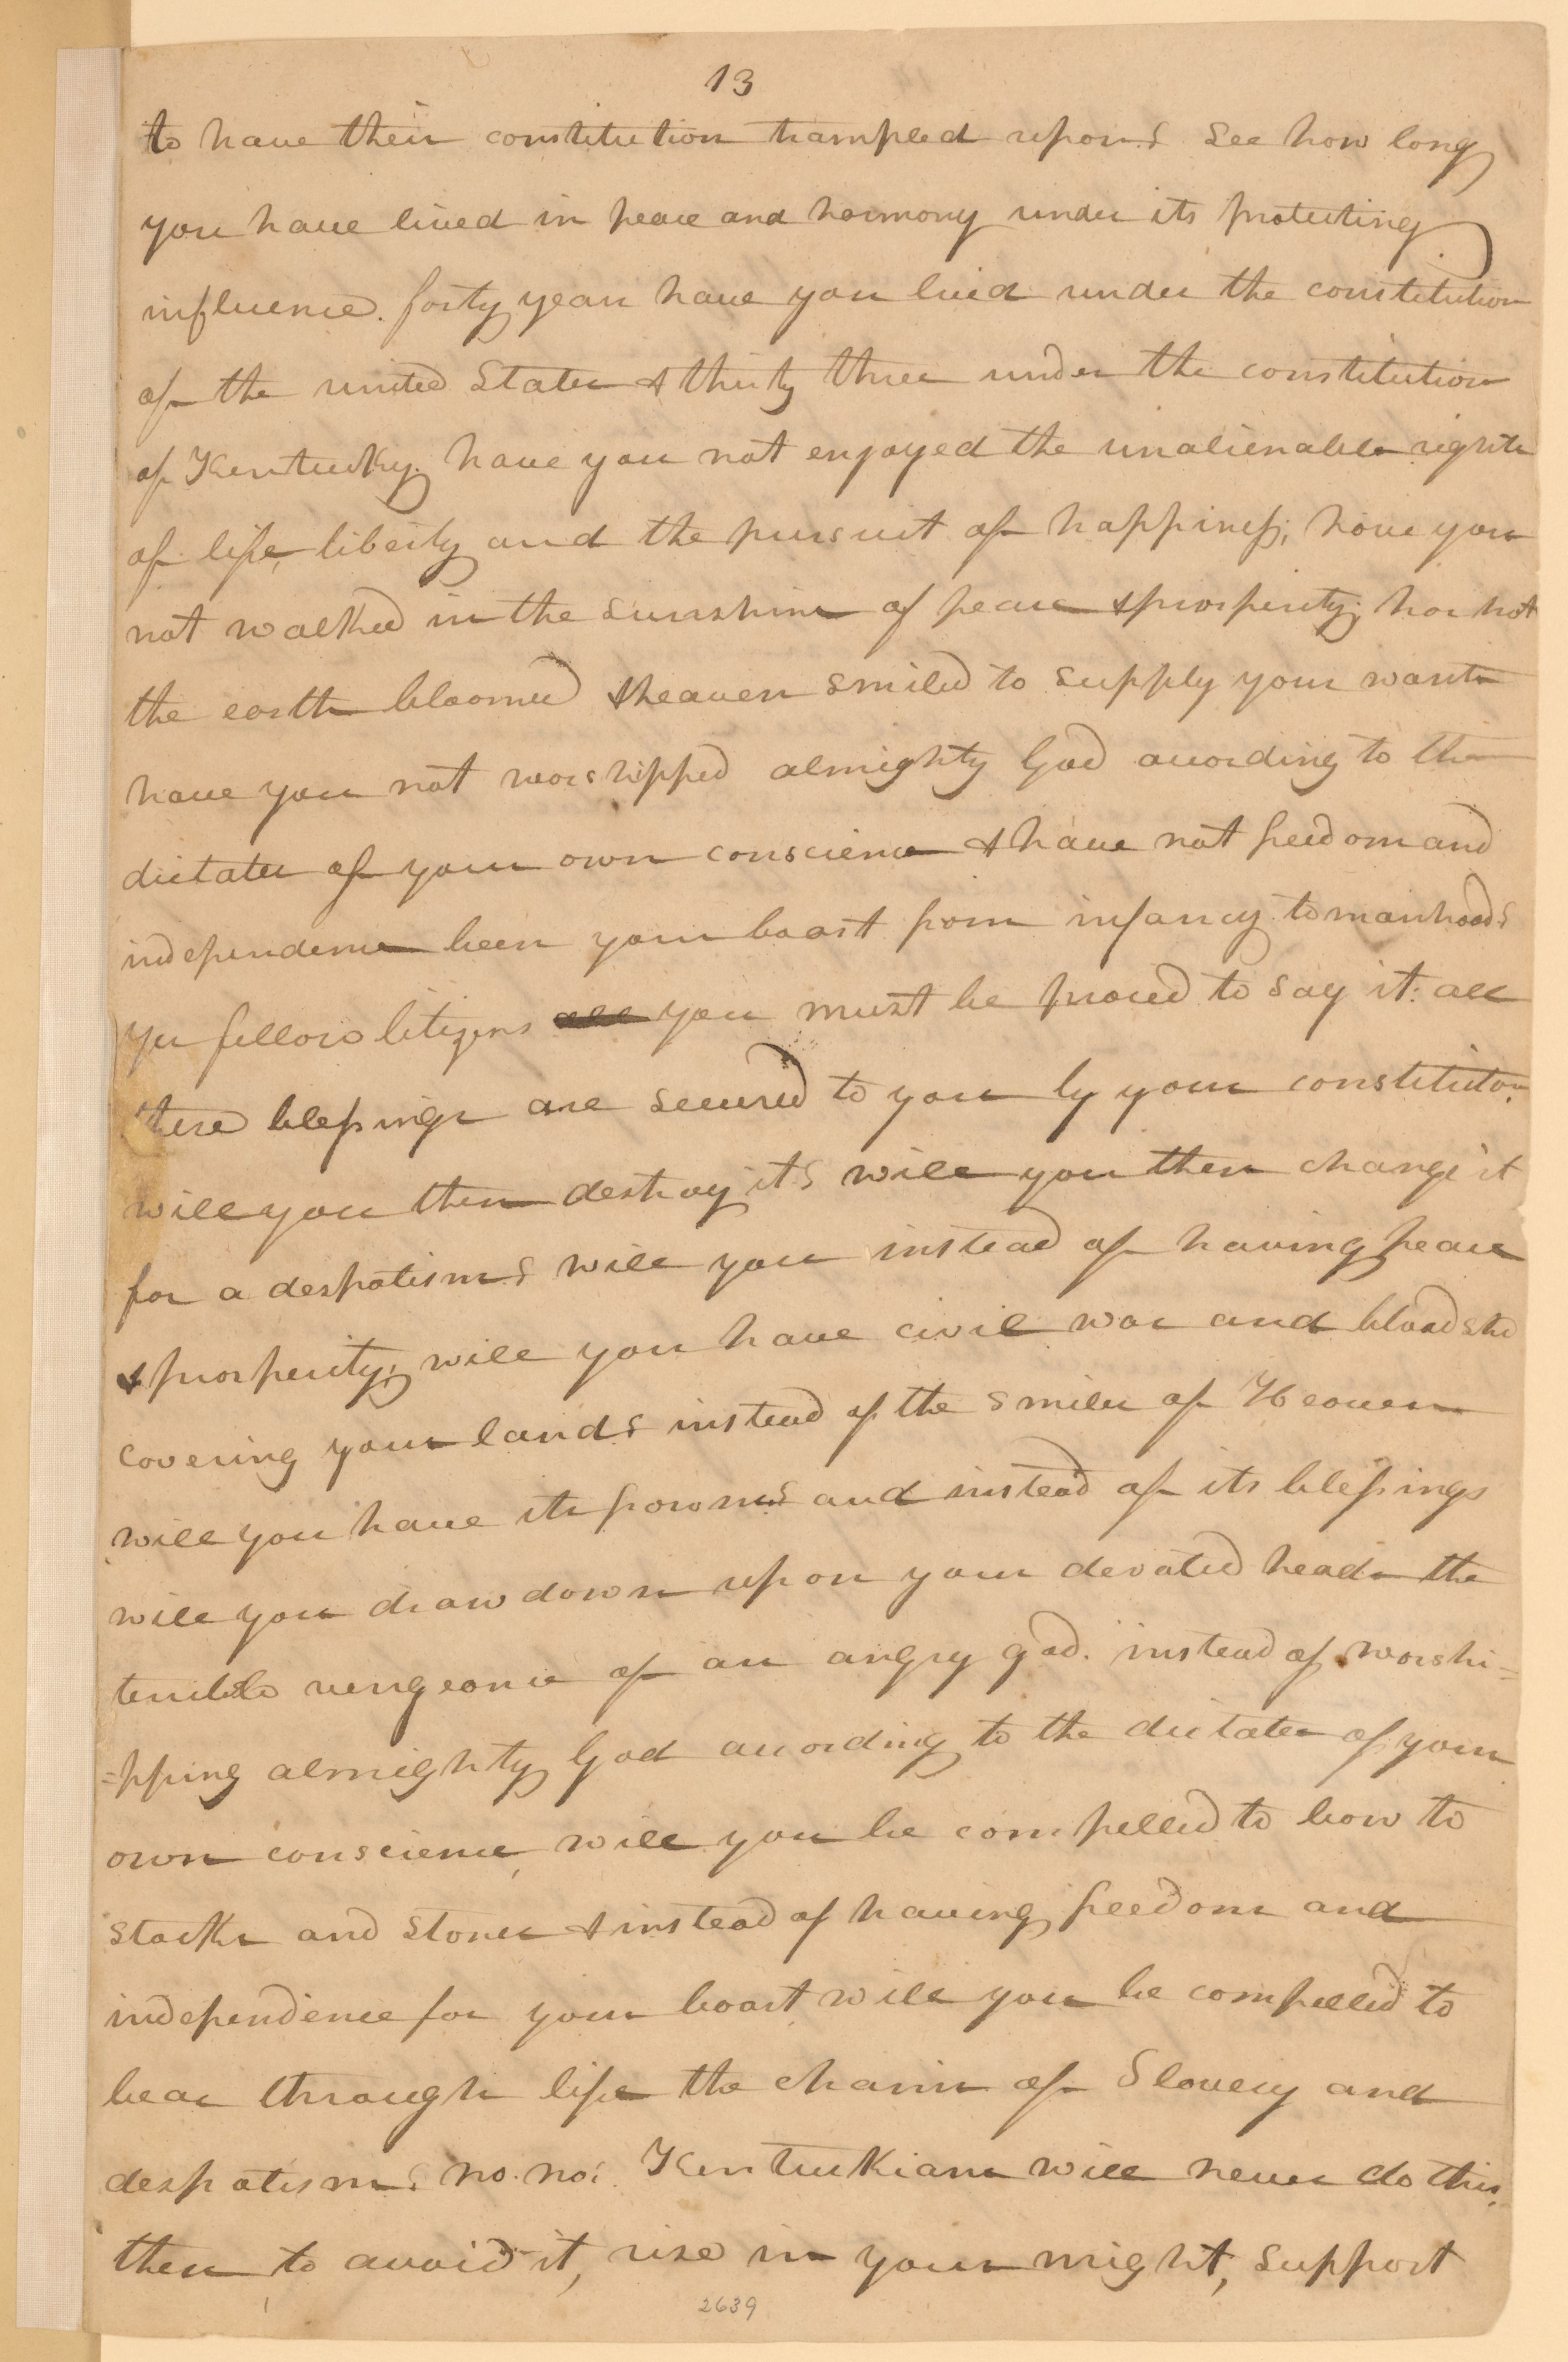 13
to have their constitution trampled upon? See how long
you have lived in peace and harmony under its protecting
influence. forty years have you lived under the constitution
of the united States & thirty three under the constitution
of Kentucky. have you not enjoyed the unalienable rights
of life, liberty and the pursuit of happiness; have you
not walked in the sunshine of peace & prosperity; has not
the earth bloomed & heaven smiled to supply your wants
have you not worshipped almighty God according to the
dictates of your own conscience & have not freedom and
independence been your boast from infancy to manhood?
yes fellow Citizens all you must be proud to say it: all
these blessings are secured to you by your constitution.
will you then destroy it? will you then change it
for a despotism? will you instead of having peace
& prosperity; will you have civil war and bloodshed
covering your land? instead of the smiles of Heaven
will you have its frowns? and instead of its blessings
will you draw down upon your devoted heads the
terrible vengeance of an angry god. instead of worshi=
=pping almighty God according to the dictates of your
own conscience, will you be compelled to bow to
stocks and stones & instead of having freedom and
independence for your boast will you be compelled to
bear through life the chains of Slavery and
despotism? no. no! Kentuckians will never do this.
then to avoid it, rise in your might, support
2639